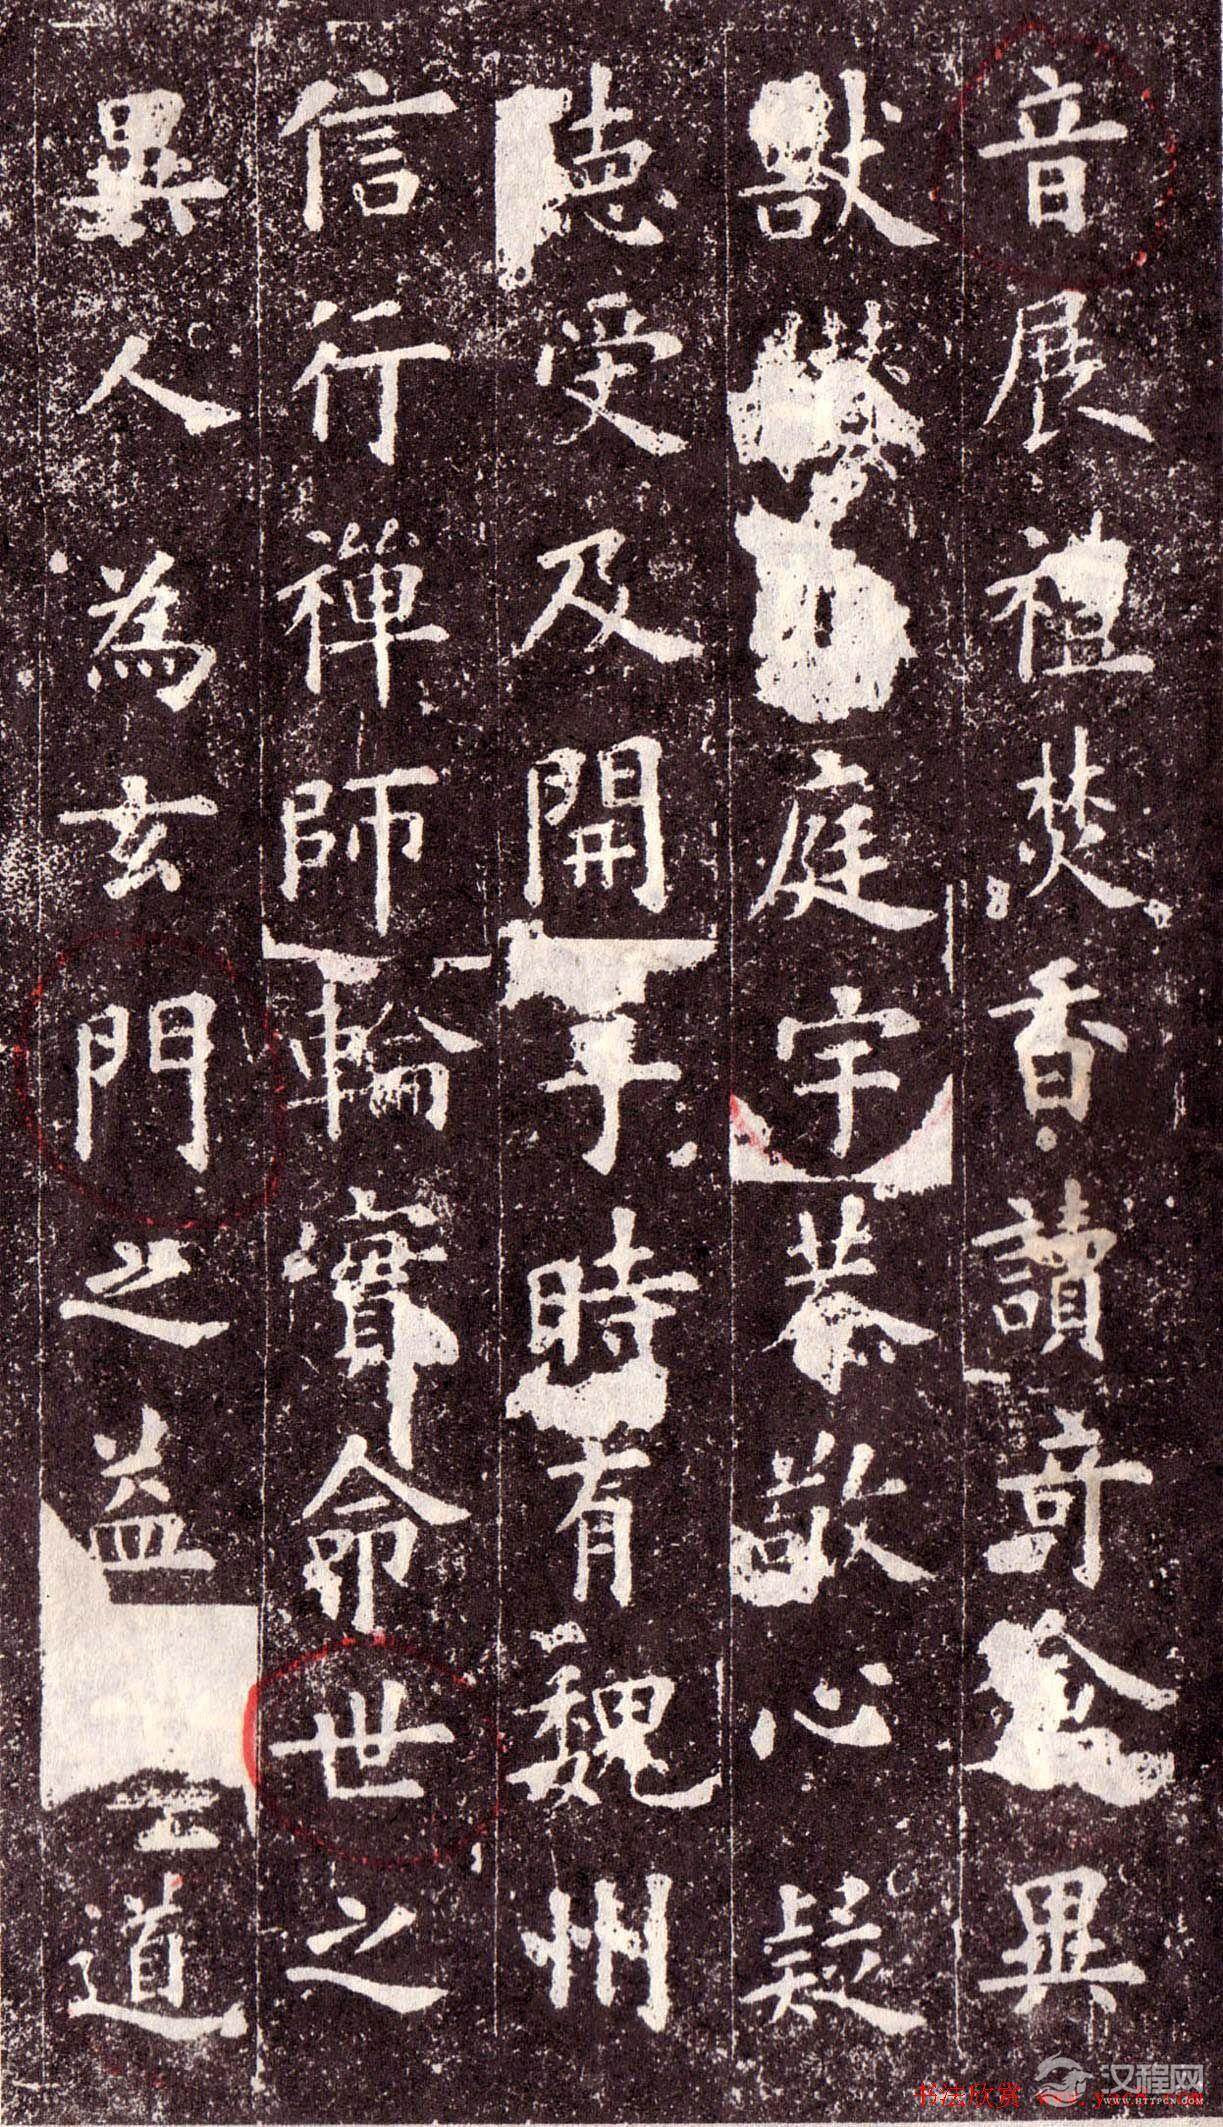 音展禮焚香讀奇金異
獸庭宇恭敬心疑
德受及開平時有魏州
信行禪師輪寶命世之
異人為玄門之益道
汉程网
WWW.HTTPCN.COM
书法欣赏